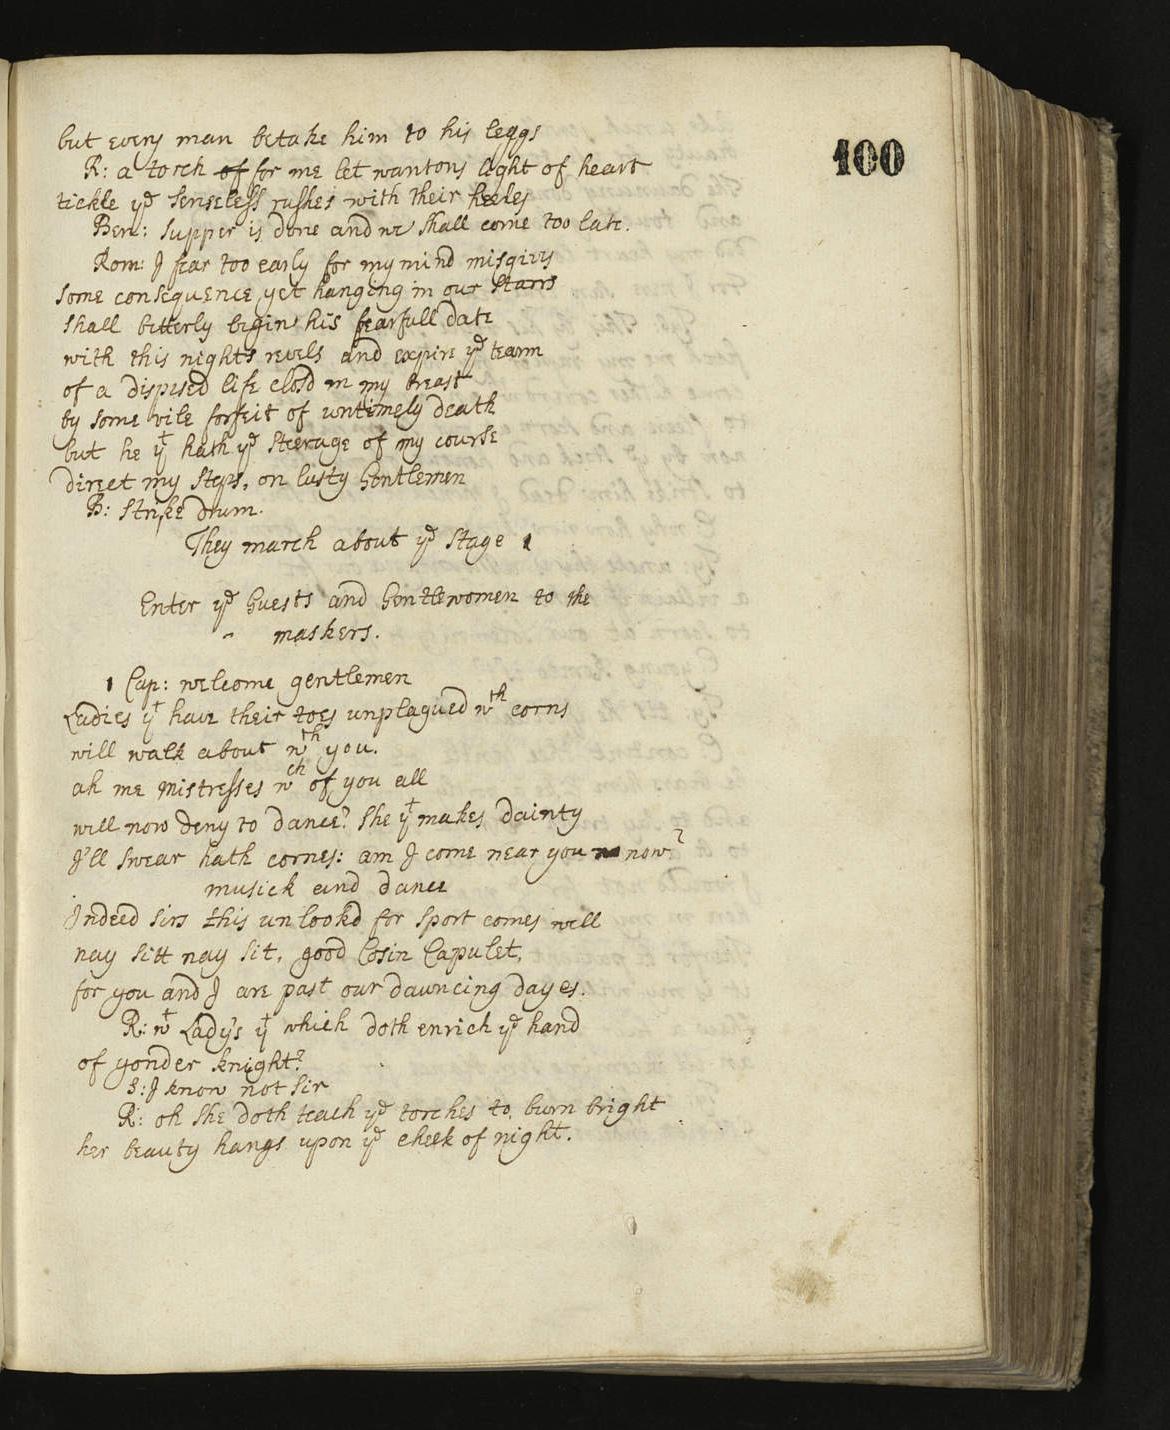 but every man betake him to his leggs
100
R: a torch of for me let wantons light of heart
tickle yᵉ senseless rushes with their heeles
Ben: supper is done and we shall come too late.
Rom: I fear too early for my mind misgives
some consequence yet hanging in our starrs
shall bitterly begin his fearfull date
with this nights revels and expire yᵉ tearm
of a dispised life closd in my breast
by some vile forfeit of untimely death
but he yᵗ hath yᵉ steerage of my course
direct my steps, on lusty Gentlemen
B: strike drum.
They march about yᵉ stage
Enter yᵉ Guests and Gentlewomen to the
maskers.
1 Cap: welcome gentlemen
Ladies yᵗ have their toes unplagued wᵗʰ corns
will walk about wᵗʰ you.
ah me mistresses wᶜʰ of you all
will now deny to dance? she yᵗ makes dainty
I'll swear hath cornes: am I come near you now?
musick and dance
Indeed sirs this unlookd for sport comes well
nay sitt nay sit, good Cosin Capulet,
for you and I are past our dauncing dayes.
R: wᵗ Lady's yᵗ which doth enrich yᵉ hand
of yonder knight?
S: I know not sir
R: oh she doth teach yᵉ torches to burn bright
her beauty hangs upon yᵉ cheek of night.